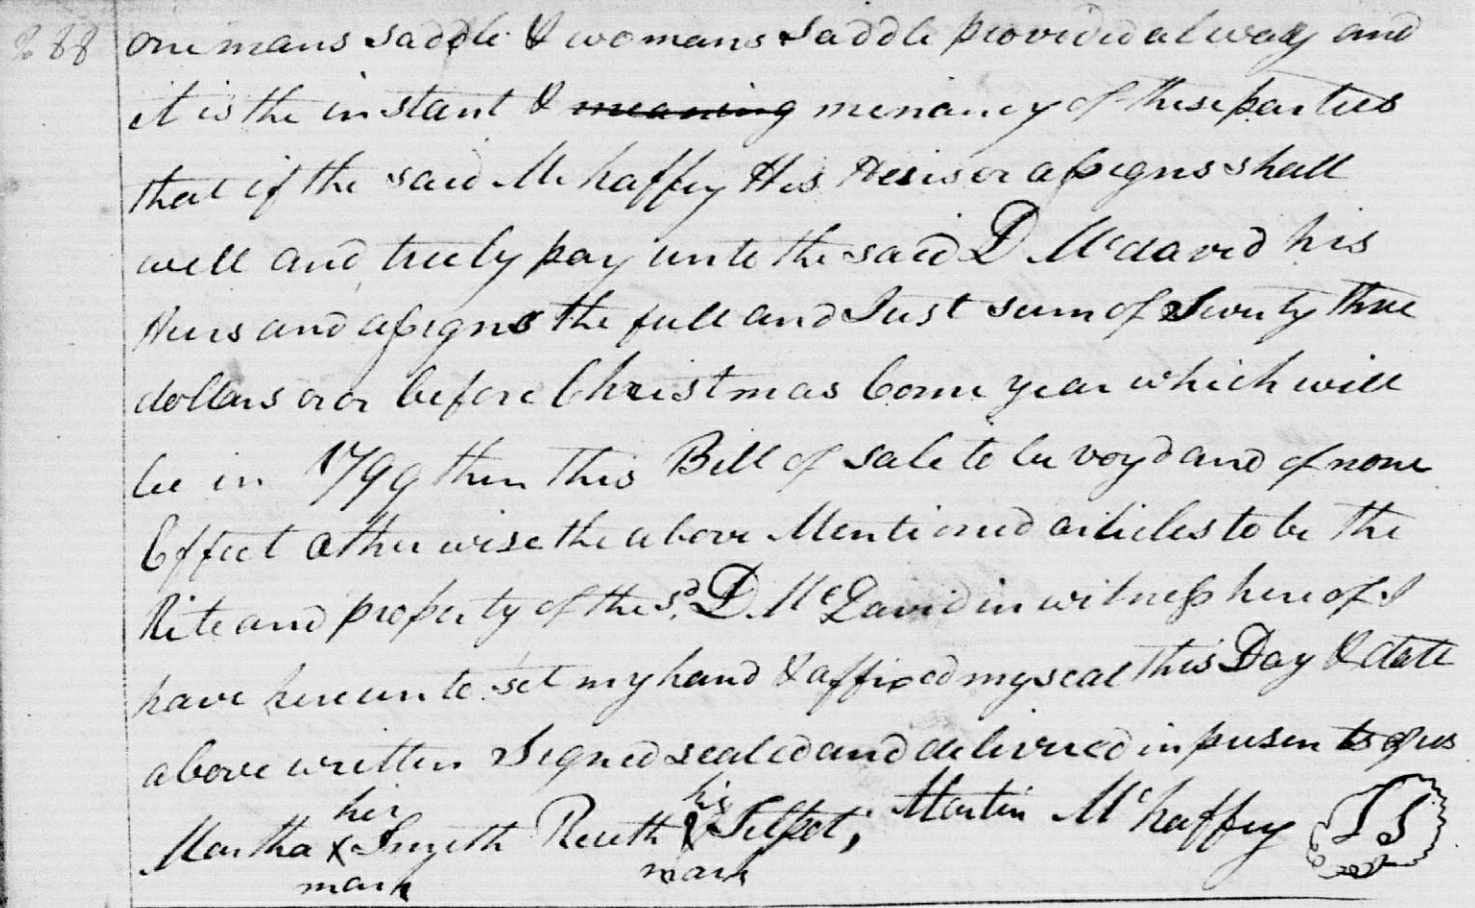 288
one mans saddle & womans saddle provided alway and
it is the instant & meaning menancy of these parties
that if the said Mchaffey His Heirs or assigns shall
well and truely pay unto the said D Mcdavid his
Heirs and assigns the full and Just sum of Twenty three
dollars on or before Christmas Come year which will
be in 1799 then this Bill of sale to be voyd and of none
Effect otherwise the above Mentioned articles to be the
Rite and property of the sd. D. McDavid in witness here of I
have hereunto set my hand & affixed my seal this Day & date
above written Signed sealed and delivered in presents of us
Martha her X mark Smyth Reuth his X mark Tilpot, Martin Mchaffey LS